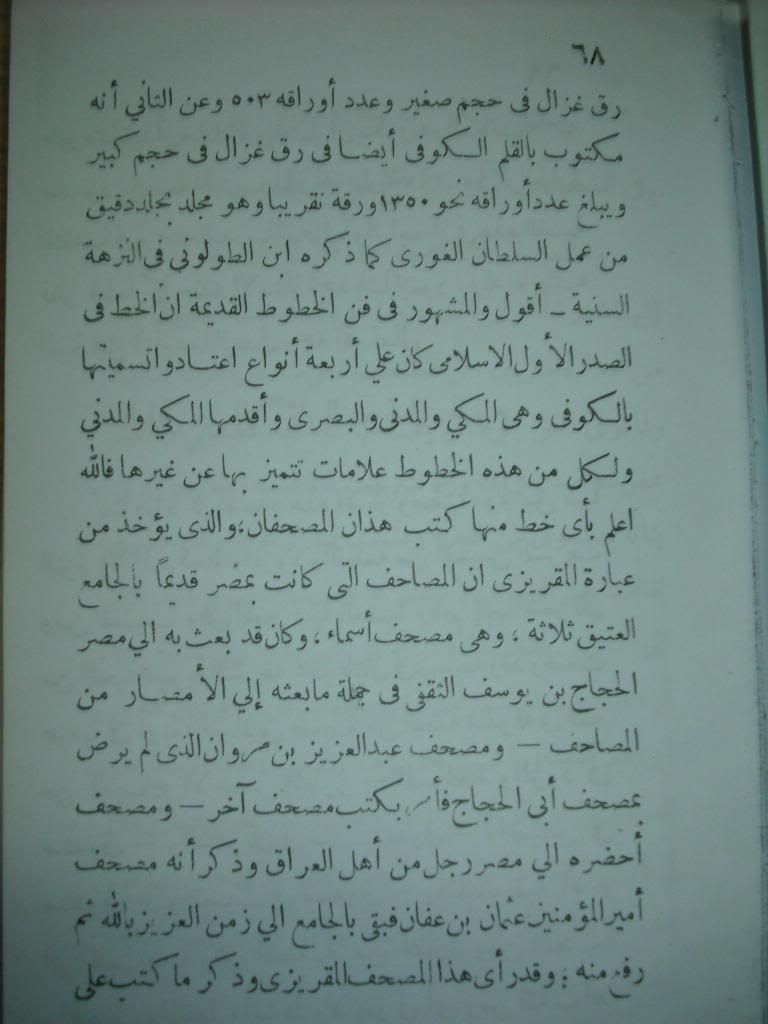 ٦٨
رق غزال فى حجم صغير وعدد أوراقه ٥٠٣ وعن الثاني أنه
مكتوب بالقلم الكوفى أيضا فى رق غزال فى حجم كبير
ويبلغ عدد أوراقه نحو ١٣٥٠ ورقة تقريبا وهو مجلد بجلد دقيق
من عمل السلطان الغورى كما ذكره ابن الطولوني في النزهة
السنية ـ أقول والمشهور فى فن الخطوط القديمة ان الخط فى
الصدر الأول الاسلامى كان علي أربعة أنواع اعتادوا تسميتها
بالكوفى وهى المكي والمدنى والبصرى وأقدمها المكي والمدني
ولكل من هذه الخطوط علامات تتميز بها عن غيرها فالله
اعلم بأى خط منها كتب هذان المصحفان؛ والذى يؤخذ من
عبارة المقريزى ان المصاحف التى كانت بمصر قديماً بالجامع
العتيق ثلاثة ؛ وهى مصحف أسماء ؛ وكان قد بعث به الي مصر
الحجاج بن يوسف الثقفى فى جملة ما بعثه إلي الأمصار من
المصاحف — ومصحف عبد العزيز بن مروان الذى لم يرض
بمصحف أبى الحجاج فأمر بكتب مصحف آخر — ومصحف
أحضره الي مصر رجل من أهل العراق وذكر أنه مصحف
أمير المؤمنين عثمان بن عفان فبقى بالجامع الي زمن العزيز بالله ثم
رفع منه ؛ وقد رأى هذا المصحف المقريزى وذكر ما كتب على